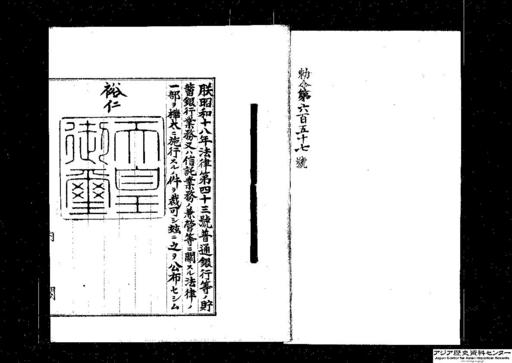 勅令第六百五十七號
朕昭和十八年法律第四十三號普通銀行等ノ貯
蓄銀行業務又ハ信託業務ノ兼營等ニ關スル法律ノ
一部ヲ樺太ニ施行スルノ件ヲ裁可シ茲ニ之ヲ公布セシム
裕仁
天皇
御璽
内
閣
アジア歴史資料センター
Japan Center for Asian Historical Records